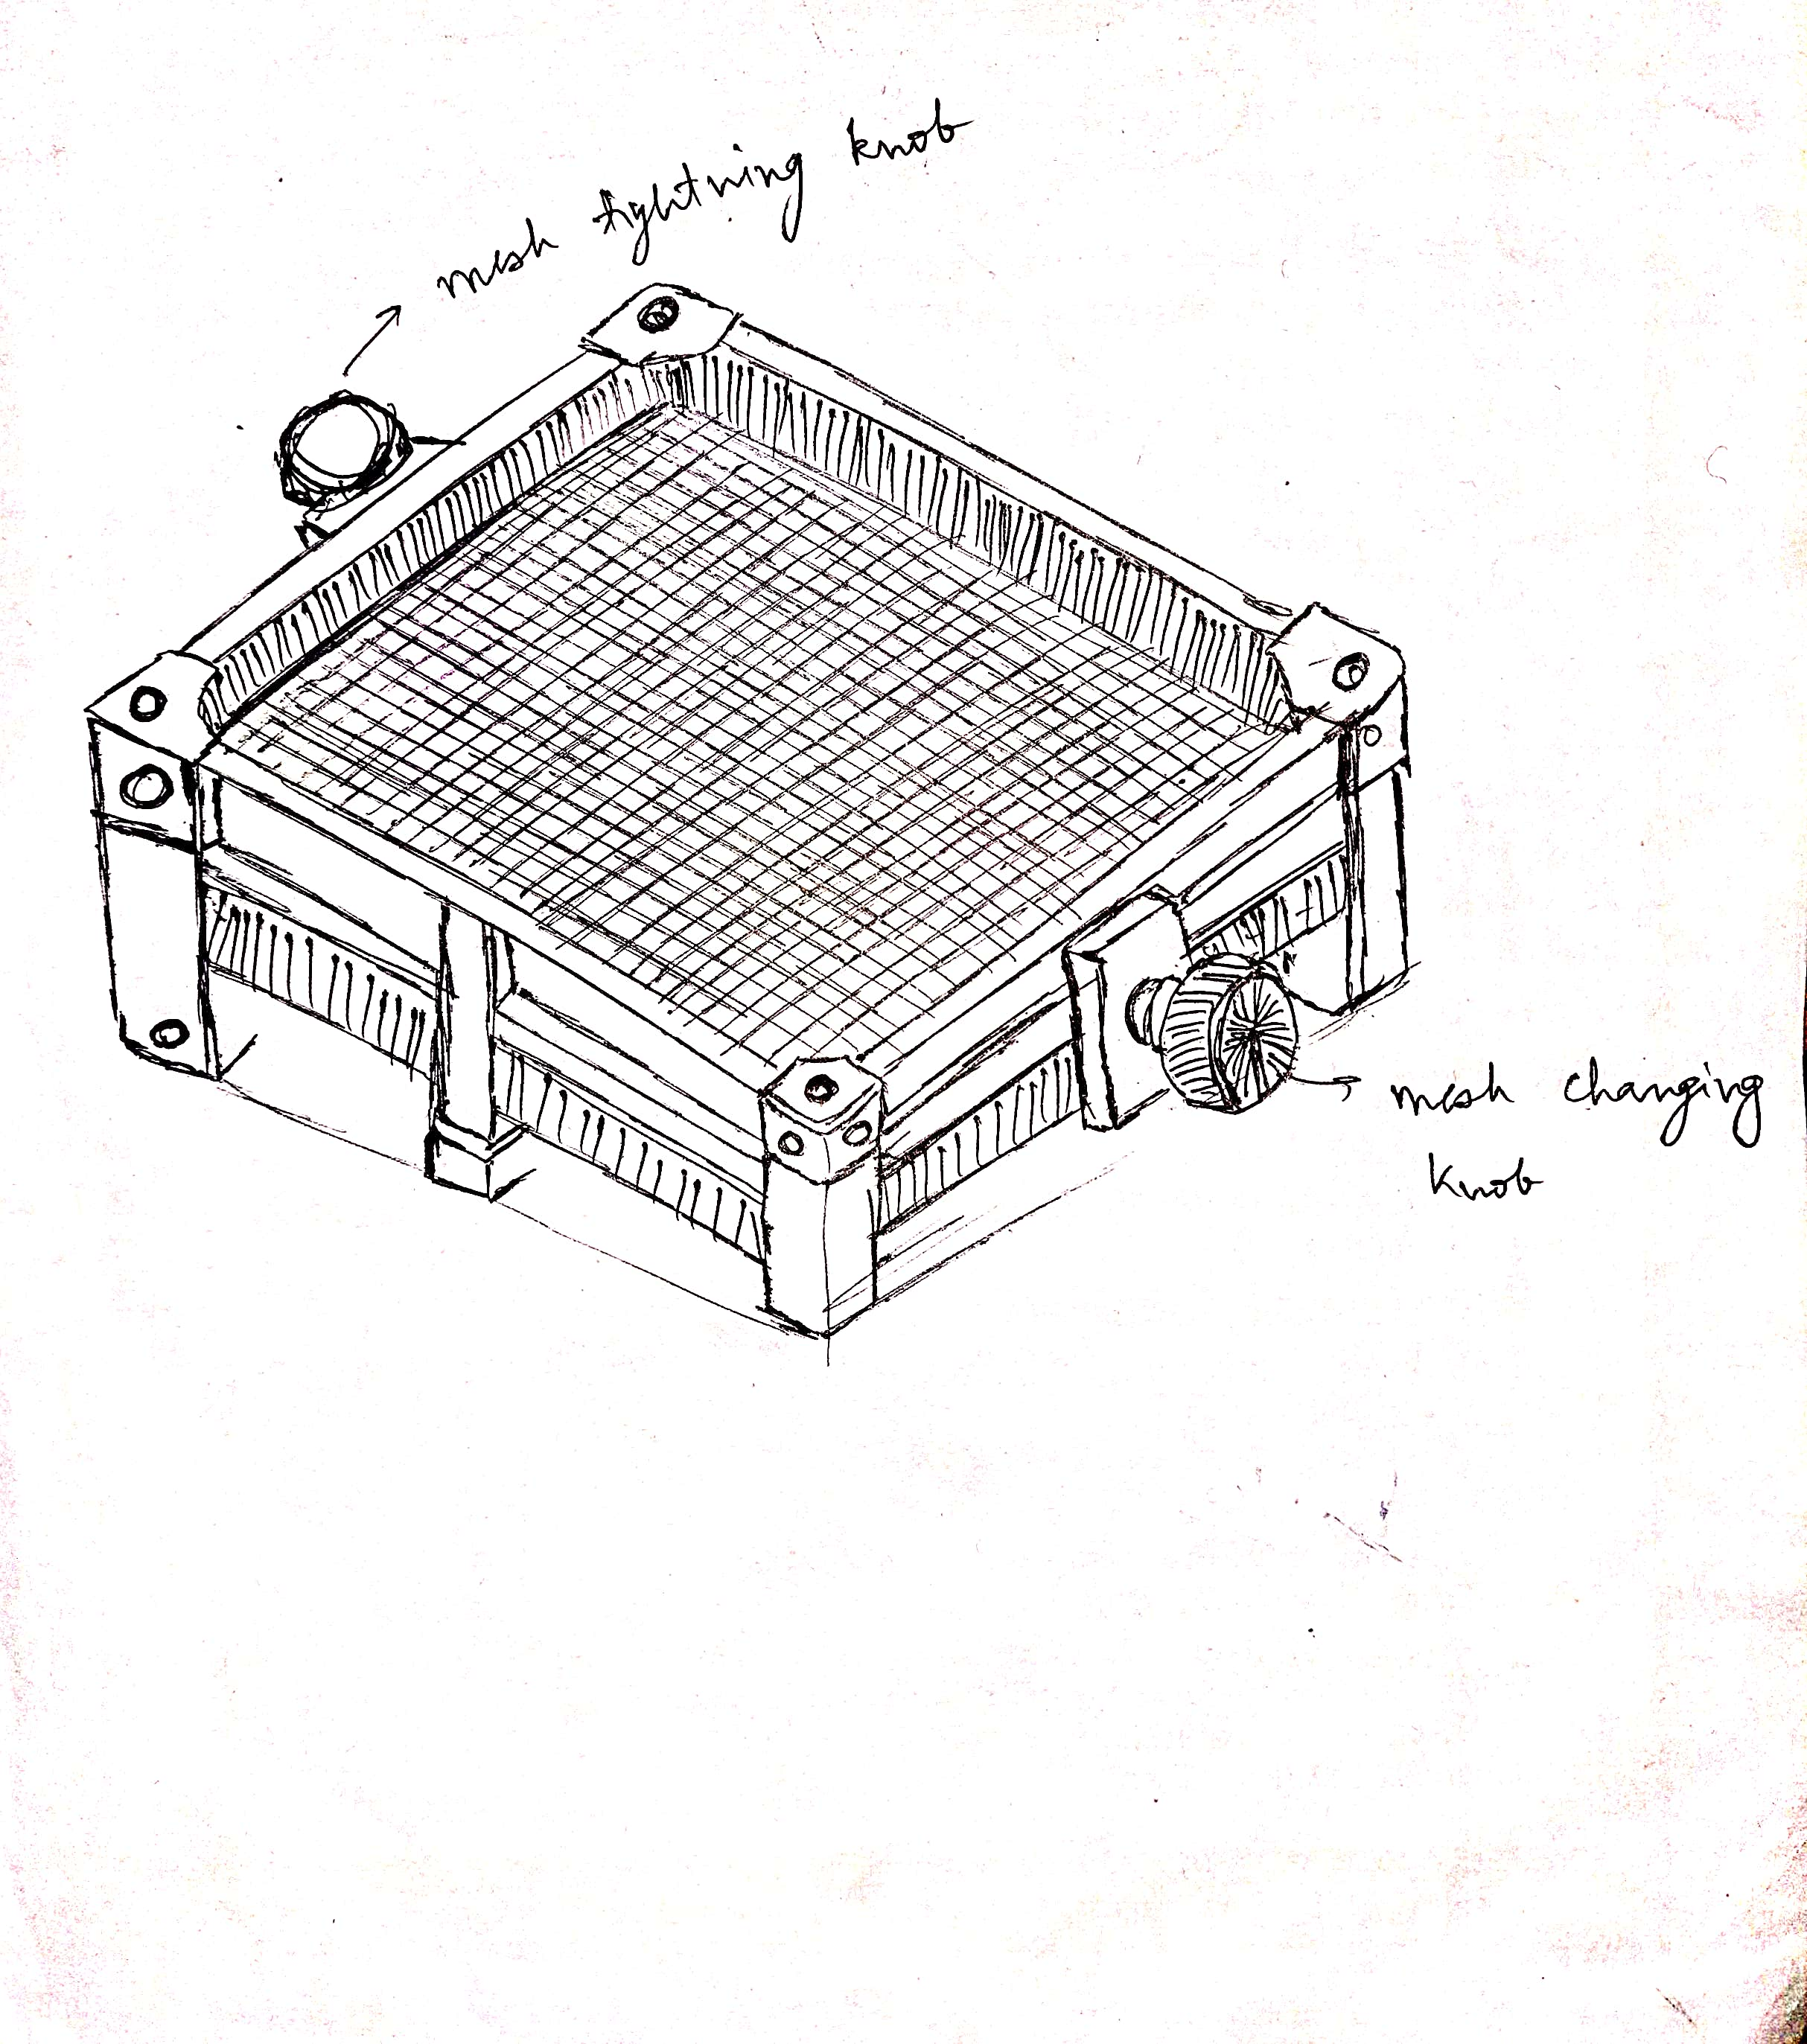 mesh tightning knob
mesh changing
knob